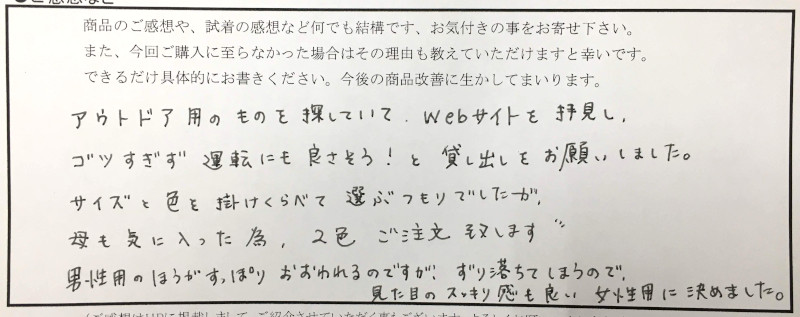 商品のご感想や、試着の感想など何でも結構です、お気付きの事をお寄せ下さい。
また、今回ご購入に至らなかった場合はその理由も教えていただけますと幸いです。
できるだけ具体的にお書きください。今後の商品改善に生かしてまいります。
アウトドア用のものを探していて、Webサイトを拝見し、
ゴツすぎず 運転にも良さそう！と 貸し出しをお願いしました。
サイズと色を掛けくらべて 選ぶつもりでしたが、
母も気に入った為、2色 ご注文致します
男性用のほうがすっぽり おおわれるのですが、ずり落ちてしまうので、
見た目のスッキリ感も良い 女性用に決めました。